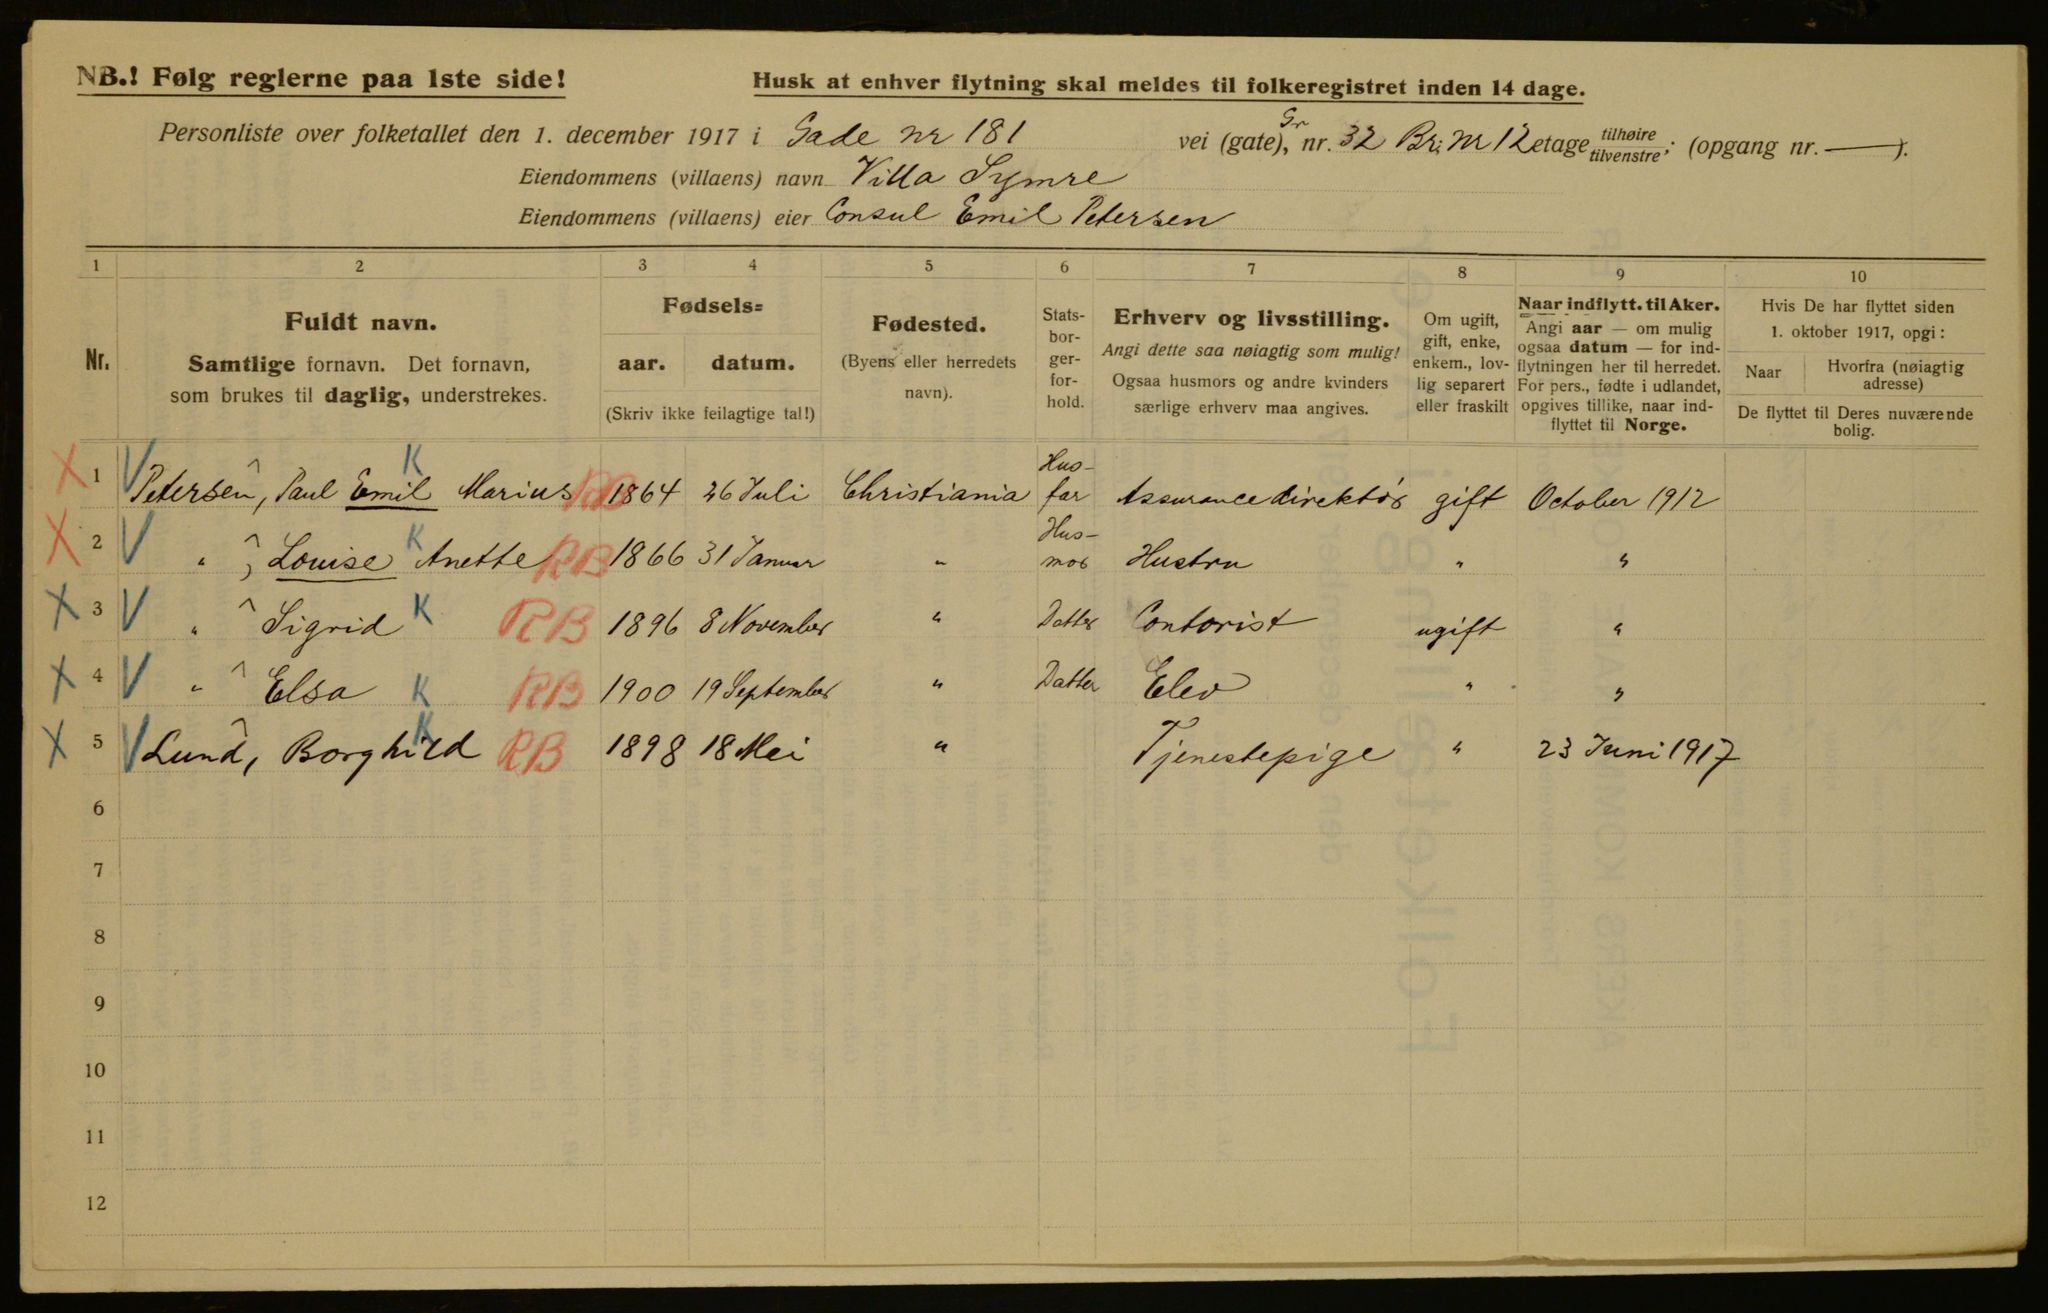 NB.! Følg reglerne paa 1ste side!
Husk at enhver flytning skal meldes til folkeregistret inden 14 dage.
Personliste over folketallet den 1. december 1917 i Gade nr 181 vei (gate), Gr nr. 32 Br. nr 12 etage tilhøire tilvenstre; (opgang nr. —).
Eiendommens (villaens) navn Villa Symre
Eiendommens (villaens) eier Consul Emil Petersen
1 2 3 4 5 6 7 8 9 10
Nr.
Fuldt navn.
Samtlige fornavn. Det fornavn,
som brukes til daglig, understrekes.
Fødsels=
aar. datum.
(Skriv ikke feilagtige tal!)
Fødested.
(Byens eller herredets
navn).
Stats-
bor-
ger-
for-
hold.
Erhverv og livsstilling.
Angi dette saa nøiagtig som mulig!
Ogsaa husmors og andre kvinders
særlige erhverv maa angives.
Om ugift,
gift, enke,
enkem., lov-
lig separert
eller fraskilt
Naar indflytt. til Aker.
Angi aar — om mulig
ogsaa datum — for ind-
flytningen her til herredet.
For pers., fødte i udlandet,
opgives tillike, naar ind-
flyttet til Norge.
Hvis De har flyttet siden
1. oktober 1917, opgi:
Naar
Hvorfra (nøiagtig
adresse)
De flyttet til Deres nuværende
bolig.
X 1 V Petersen, Paul Emil K Marius RB 1864 26 Juli Christiania Hus-far Assurancedirektør gift October 1912
X 2 V " , Louise K Anette RB 1866 31 Januar " Hus-mor Hustru " "
X 3 V " Sigrid K RB 1896 8 November " Datter Contorist ugift "
X 4 V " Elsa K RB 1900 19 September " Datter Elev " "
X 5 V Lund, Borghild K RB 1898 18 Mei " Tjenestepige " 23 Juni 1917
6
7
8
9
10
11
12